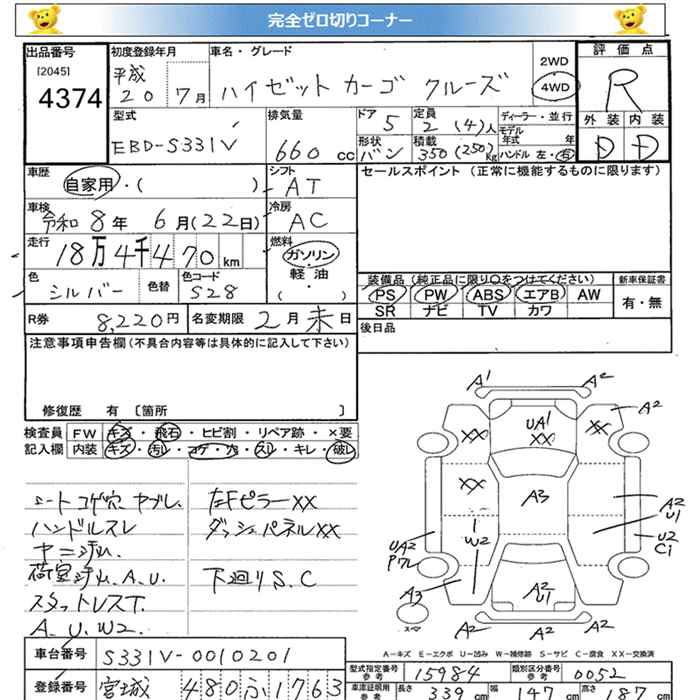 完全ゼロ切りコーナー
出品番号
[2045]
4374
初度登録年月
平成
20 7月
車名・グレード
ハイゼットカーゴ クルーズ
2WD
4WD
評価点
R
外装 内装
D D
型式
EBD-S331V
排気量
660 cc
ドア 5
形状 バン
定員 2 (4)人
積載 350 (250)kg
ディーラー・並行
モデル年式 年
ハンドル 左・右
車歴
自家用・( )
シフト
AT
セールスポイント (正常に機能するものに限ります)
車検
令和8年 6月(22日)
冷房
AC
走行
18万4千470km
燃料
ガソリン
軽油
( ・ )
色
シルバー
色替
色コード
S28
装備品(純正品に限り○をつけてください)
PS PW ABS エアB AW
SR ナビ TV カワ
新車保証書
有・無
R券 8,220円
名変期限 2月末日
後日品
注意事項申告欄(不具合内容等は具体的に記入して下さい)
修復歴 有 〔箇所 〕
検査員 FW キズ・飛石・ヒビ割・リペア跡・×要
記入欄 内装 キズ・汚レ・コゲ・穴・スレ・キレ・破レ
シートコゲ穴ヤブレ.
ハンドルスレ
ヤニ汚レ.
荷室汚レ.A.U.
スタットレスT.
A.U.W2.
左Fピラー××
ダッシュパネル××
下廻りS.C
A1 A2
A2
UA1
××
×× ××
××
A3
A2
U1
W2
UA2
U2
C1
A3
A2
U1
A2 A2
スペア
A-キズ E-エクボ U-凹み W-補修跡 S-サビ C-腐食 XX-交換済
車台番号 S331V-0010201
型式指定番号
参考 15984
類別区分番号
参考 0052
登録番号 宮城 480ふ1763
車庫証明用
参考
長さ 339 cm 幅 147 cm 高さ 187 cm